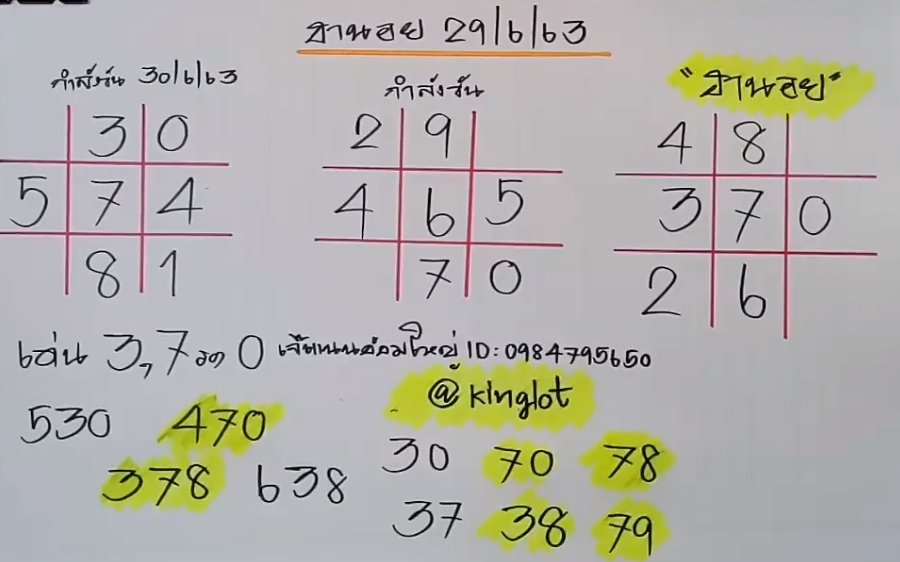 ฮานอย 29/6/63
กำลังวัน 30/6/63
3 0
5 7 4
8 1
กำลังวัน
2 9
4 6 5
7 0
"ฮานอย"
4 8
3 7 0
2 6
เด่น 3,7 รอง 0
ID: 0984795650
@kinglot
530 470
378 638
30 70 78
37 38 79